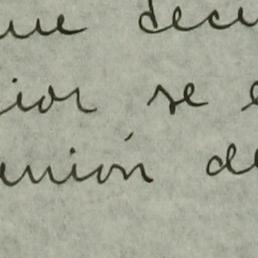 ue decu
ior se e
unión de